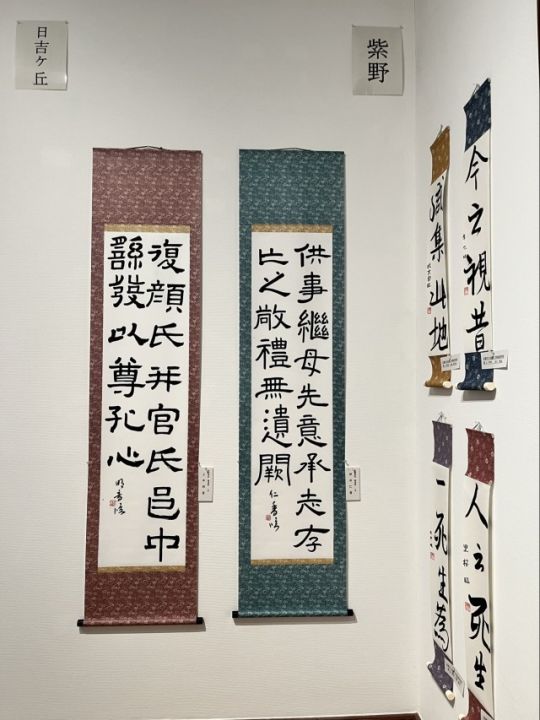 紫野
日吉ヶ丘
今之視昔
咸集此地
人之死生
一死生為
供事繼母先意承志存
亡之敬禮無遺闕
復顔氏并官氏邑中
繇發以尊孔心